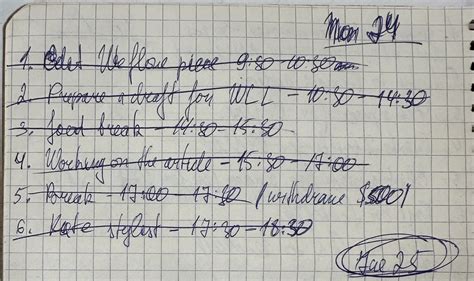 Mon 24
1. Edit Webflow piece 9:30 - 10:30
2. Prepare a draft for WLL - 10:30 - 14:30
3. food break - 14:30 - 15:30
4. Working on the article - 15:30 - 17:00
5. Break - 17:00 - 17:30 (withdraw $500)
6. Kate stylist - 17:30 - 18:30
Tue 25